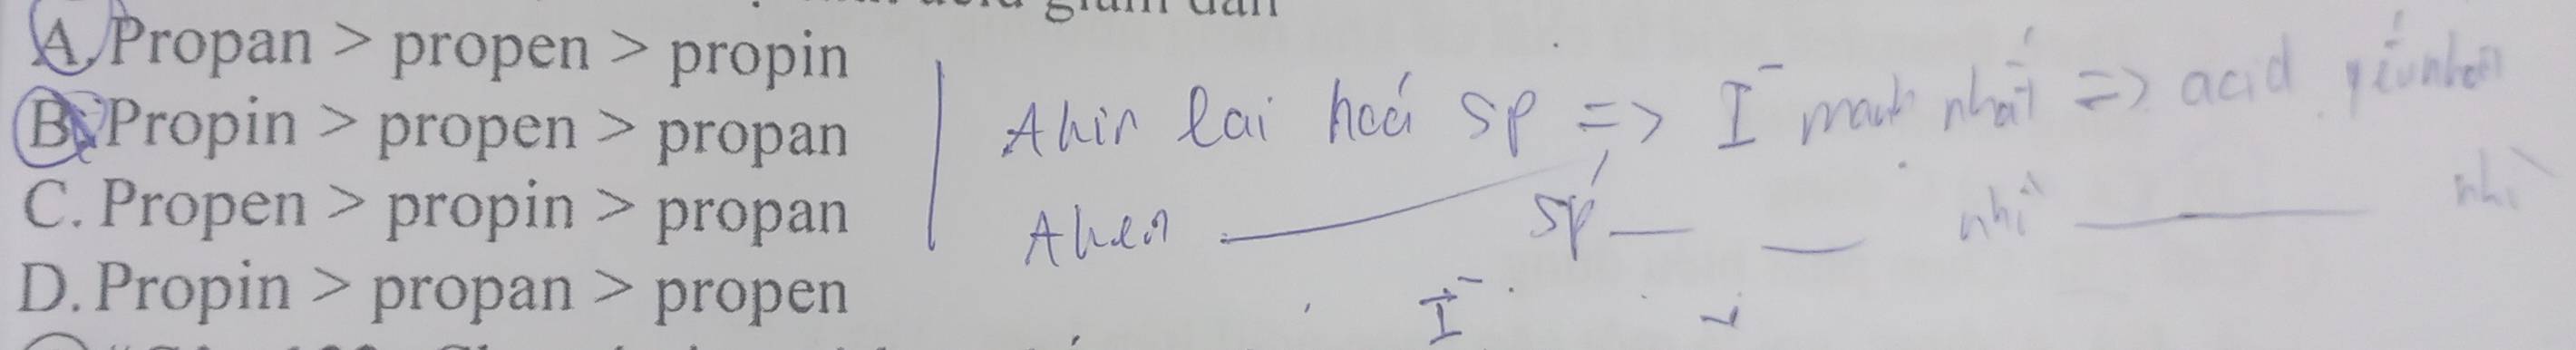 acid giảm dần
A. Propan > propen > propin
B. Propin > propen > propan
C. Propen > propin > propan
D. Propin > propan > propen
Akin lai hoá sp => I⁻ mạnh nhất => acid yếu nhất
Aken sp² nhì nhì
I⁻